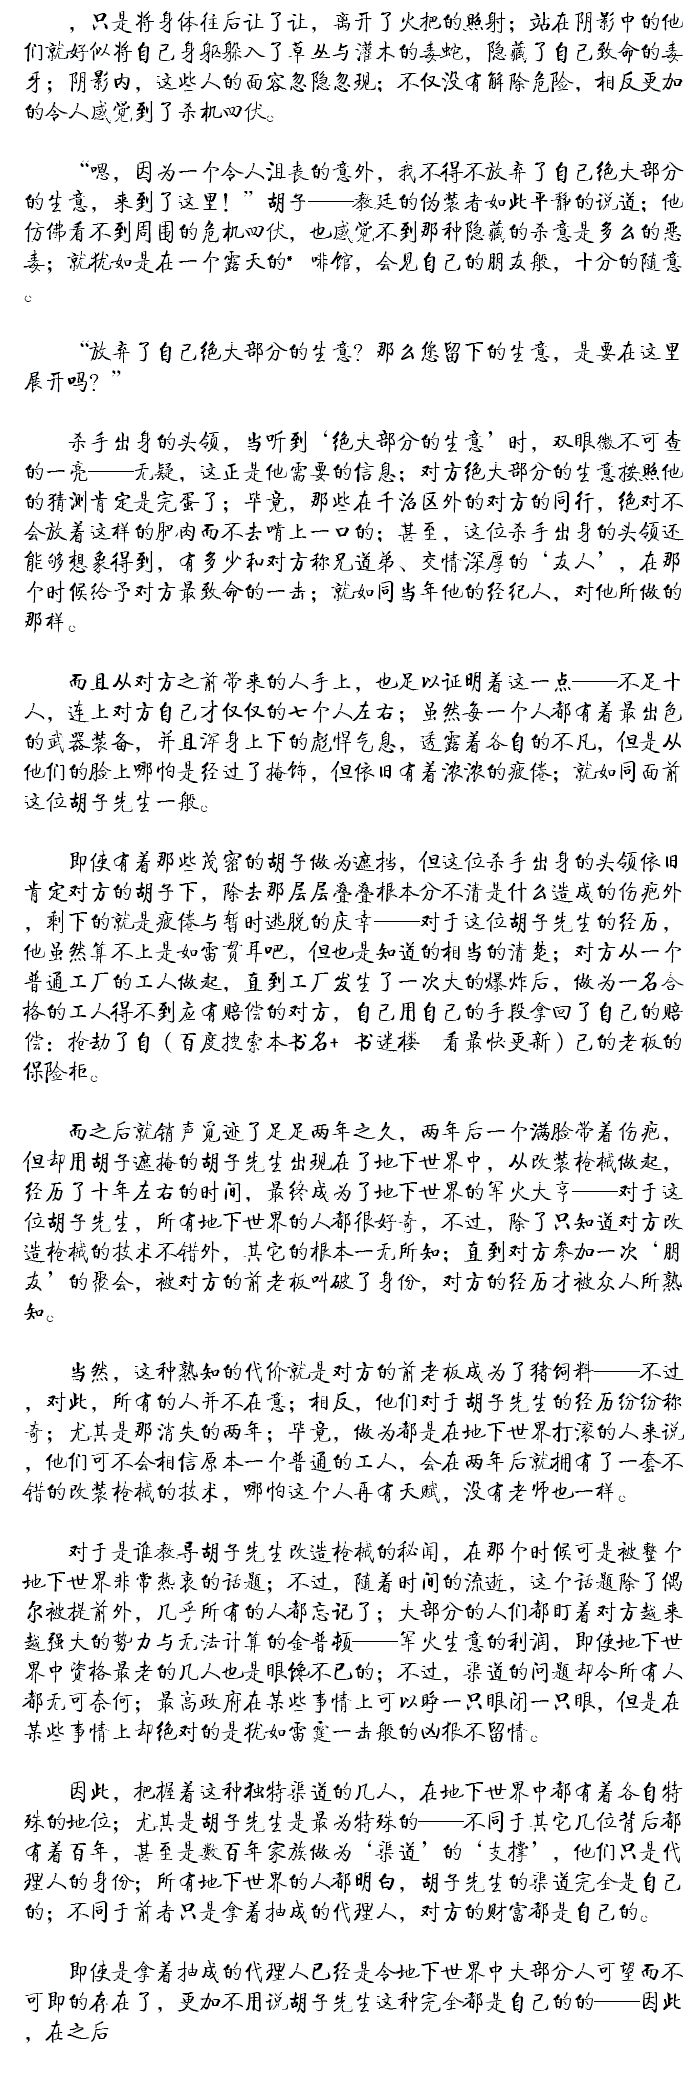 ，只是将身体往后让了让，离开了火把的照射；站在阴影中的他
们就好似将自己身躯躲入了草丛与灌木的毒蛇，隐藏了自己致命的毒
牙；阴影内，这些人的面容忽隐忽现；不仅没有解除危险，相反更加
的令人感觉到了杀机四伏。
“嗯，因为一个令人沮丧的意外，我不得不放弃了自己绝大部分
的生意，来到了这里！”胡子——教廷的伪装者如此平静的说道；他
仿佛看不到周围的危机四伏，也感觉不到那种隐藏的杀意是多么的恶
毒；就犹如是在一个露天的* 啡馆，会见自己的朋友般，十分的随意
。
“放弃了自己绝大部分的生意？那么您留下的生意，是要在这里
展开吗？”
杀手出身的头领，当听到‘绝大部分的生意’时，双眼微不可查
的一亮——无疑，这正是他需要的信息；对方绝大部分的生意按照他
的猜测肯定是完蛋了；毕竟，那些在千治区外的对方的同行，绝对不
会放着这样的肥肉而不去啃上一口的；甚至，这位杀手出身的头领还
能够想象得到，有多少和对方称兄道弟、交情深厚的‘友人’，在那
个时候给予对方最致命的一击；就如同当年他的经纪人，对他所做的
那样。
而且从对方之前带来的人手上，也足以证明着这一点——不足十
人，连上对方自己才仅仅的七个人左右；虽然每一个人都有着最出色
的武器装备，并且浑身上下的彪悍气息，透露着各自的不凡，但是从
他们的脸上哪怕是经过了掩饰，但依旧有着浓浓的疲倦；就如同面前
这位胡子先生一般。
即使有着那些茂密的胡子做为遮挡，但这位杀手出身的头领依旧
肯定对方的胡子下，除去那层层叠叠根本分不清是什么造成的伤疤外
，剩下的就是疲倦与暂时逃脱的庆幸——对于这位胡子先生的经历，
他虽然算不上是如雷贯耳吧，但也是知道的相当的清楚；对方从一个
普通工厂的工人做起，直到工厂发生了一次大的爆炸后，做为一名合
格的工人得不到应有赔偿的对方，自己用自己的手段拿回了自己的赔
偿：抢劫了自（百度搜索本书名+ 书迷楼 看最快更新）己的老板的
保险柜。
而之后就销声觅迹了足足两年之久，两年后一个满脸带着伤疤，
但却用胡子遮掩的胡子先生出现在了地下世界中，从改装枪械做起，
经历了十年左右的时间，最终成为了地下世界的军火大亨——对于这
位胡子先生，所有地下世界的人都很好奇，不过，除了只知道对方改
造枪械的技术不错外，其它的根本一无所知；直到对方参加一次‘朋
友’的聚会，被对方的前老板叫破了身份，对方的经历才被众人所熟
知。
当然，这种熟知的代价就是对方的前老板成为了猪饲料——不过
，对此，所有的人并不在意；相反，他们对于胡子先生的经历纷纷称
奇；尤其是那消失的两年；毕竟，做为都是在地下世界打滚的人来说
，他们可不会相信原本一个普通的工人，会在两年后就拥有了一套不
错的改装枪械的技术，哪怕这个人再有天赋，没有老师也一样。
对于是谁教导胡子先生改造枪械的秘闻，在那个时候可是被整个
地下世界非常热衷的话题；不过，随着时间的流逝，这个话题除了偶
尔被提前外，几乎所有的人都忘记了；大部分的人们都盯着对方越来
越强大的势力与无法计算的金普顿——军火生意的利润，即使地下世
界中资格最老的几人也是眼馋不已的；不过，渠道的问题却令所有人
都无可奈何；最高政府在某些事情上可以睁一只眼闭一只眼，但是在
某些事情上却绝对的是犹如雷霆一击般的凶狠不留情。
因此，把握着这种独特渠道的几人，在地下世界中都有着各自特
殊的地位；尤其是胡子先生是最为特殊的——不同于其它几位背后都
有着百年，甚至是数百年家族做为‘渠道’的‘支撑’，他们只是代
理人的身份；所有地下世界的人都明白，胡子先生的渠道完全是自己
的；不同于前者只是拿着抽成的代理人，对方的财富都是自己的。
即使是拿着抽成的代理人已经是令地下世界中大部分人可望而不
可即的存在了，更加不用说胡子先生这种完全都是自己的的——因此
，在之后